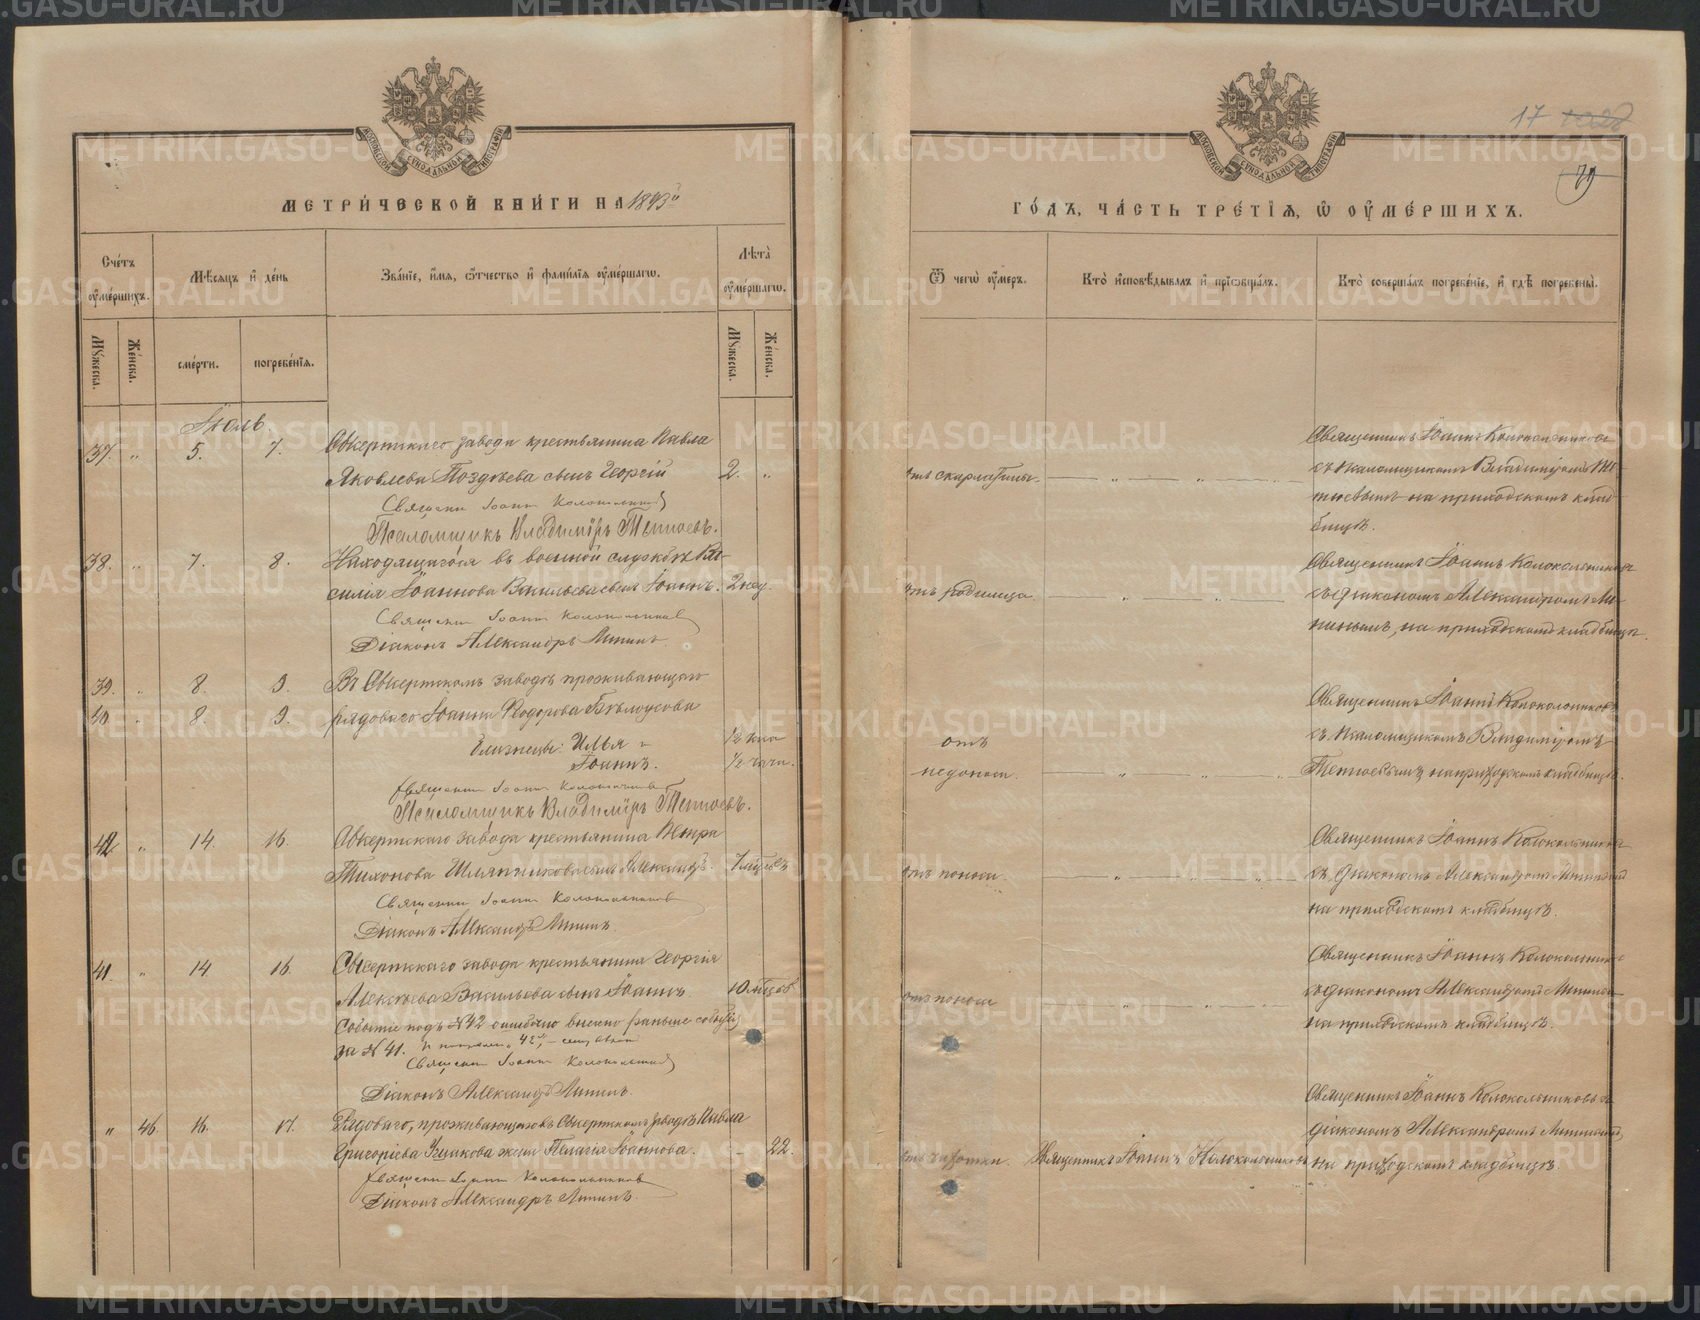 МЕТРИ́ЧЕСКОЙ КНИ́ГИ НА 1893й
Сче́тъ оумє́ршихъ.
Мѣсяцъ и де́нь
Зва́нїе, и́мя, о́тчество и фами́лїя оумє́ршагѡ.
Лѣта̀ оумє́ршагѡ.
Мꙋ́жеска.
Же́нска.
сме́рти.
погребе́нїя.
Мꙋ́жеска.
Же́нска.
Іюль.
37. „ 5. 7. Сысертскаго завода крестьянина Павла
Яковлева Поздѣева сынъ Георгій 2. „
Священн Іоаннъ Колокольников
Псаломщикъ Владиміръ Тетюевъ.
38. „ 7. 8. Находящагося въ военной службѣ Ва-
силія Іоаннова Васильева сынъ Іоаннъ. 2 нед.
Священн Іоаннъ Колокольников
Діаконъ Александръ Мининъ.
39. „ 8. 9. Въ Сысертскомъ заводѣ проживающаго
40. „ 8. 9. рядоваго Іоанна Ѳеодорова Бѣлоусова
близнецы: Илья и ½ часа
Іоаннъ. ½ часа.
Священн Іоаннъ Колокольников
Псаломщикъ Владиміръ Тетюевъ.
42. „ 14. 16. Сысертскаго завода крестьянина Петра
Тихонова Шляпникова сынъ Александръ. 7 мѣсяцевъ
Священн Іоаннъ Колокольников
Діаконъ Александръ Мининъ.
41. „ 14 16. Сысертскаго завода крестьянина Георгія
Алексѣева Васильева сынъ Іоаннъ 10 мѣсяцев
Событіе подъ N42 ошибочно внесено раньше событія
за N 41.
Священн Іоаннъ Колокольников
Діаконъ Александръ Мининъ.
„ 46 16. 17. Рядоваго, проживающаго въ Сысертскомъ заводѣ Павла
Григоріева Ушакова жена Пелагія Іоаннова. - 22.
Священн Іоаннъ Колокольников
Діаконъ Александръ Мининъ.
17
79
ГО́ДЪ, ЧА́СТЬ ТРЕ́ТЇѦ, Ѡ̑ ОУМЕ́РШИХЪ.
Ѿ чегѡ̀ оу́меръ.
Кто̀ исповѣ́дывалъ и прїѡбща́лъ.
Кто̀ соверша́лъ погребе́нїе, и гдѣ̀ погребены̀.
отъ скарлатины.
Священникъ Іоаннъ Колокольниковъ
съ псаломщикомъ Владиміромъ Те-
тюевымъ на приходскомъ клад-
бищѣ.
отъ родимца.
Священникъ Іоаннъ Колокольников
съ діакономъ Александромъ Ми-
нинымъ, на приходскомъ кладбищѣ.
отъ
недоноси.
Священникъ Іоаннъ Колокольниковъ
съ псаломщикомъ Владиміромъ
Тетюевымъ на приходскомъ кладбищѣ.
отъ поноса.
Священникъ Іоаннъ Колокольников
съ діакономъ Александромъ Мининымъ
на приходскомъ кладбищѣ.
отъ поноса
Священникъ Іоаннъ Колокольников
съ діакономъ Александромъ Мининым
на приходскомъ кладбищѣ.
отъ чахотки. Священникъ Іоаннъ Колокольниковъ
Священникъ Іоаннъ Колокольниковъ съ
діакономъ Александромъ Мининымъ
на приходскомъ кладбищѣ.
METRIKI.GASO-URAL.RU